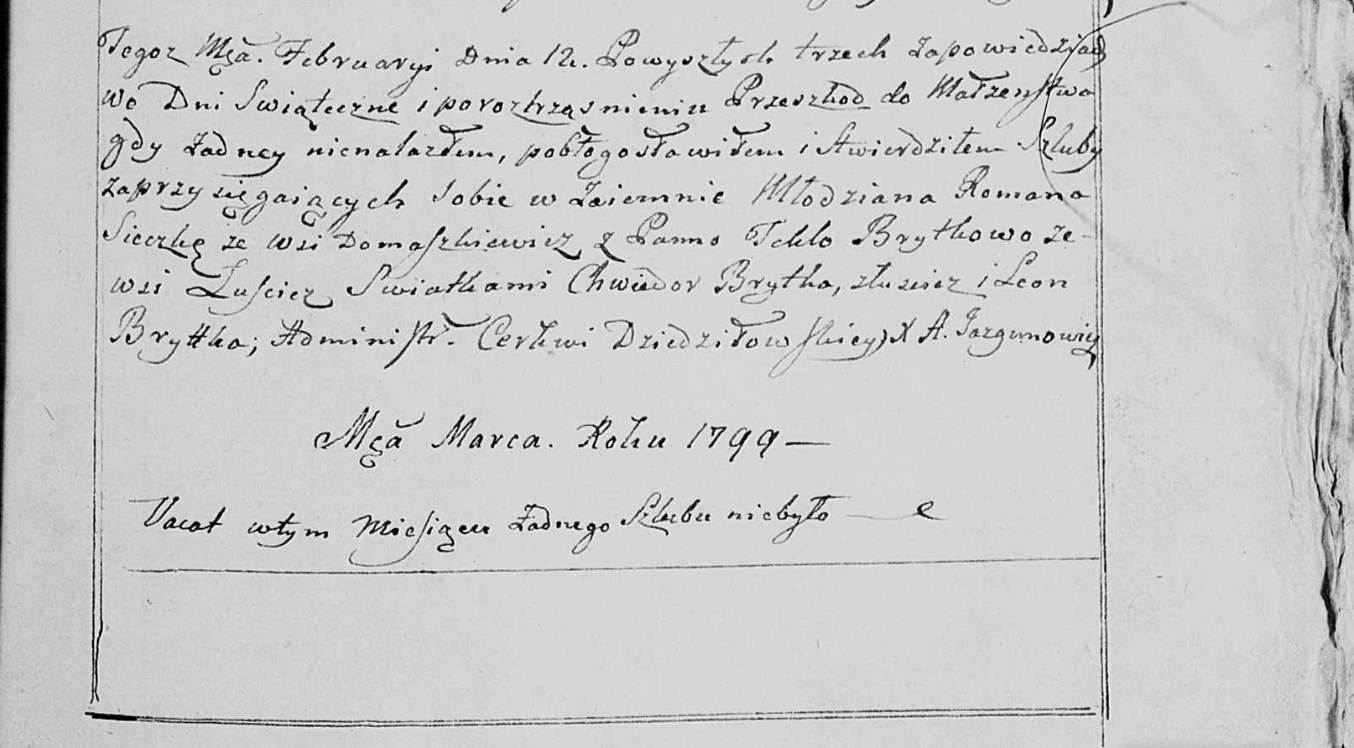 Tegoz Mca. Februaryi Dnia 12. Powyszłych trzech zapowiedziach
wo Dni Swiąteczne i poroztrząsnieniu Przeszkod do Małzenstwa
gdy Zadney nienalazłem, pobłogosławiłem i Stwierdziłem Szluby
zaprzysięgaiących Sobie w Zaiemnie Młodziana Romana
Sieczkę ze wsi Domaszkiewicz z Panno Teklo Brytkowo ze-
wsi Łuscicz Swiatkami Chwiedor Brytka, złuscicz i Leon
Brytka; Administr. Cerkwi Dziedziłowskiey X A. Jazgunowicz
Mca Marca. Roku 1799 —
Vacat wtym Miesiącu Zadnego Szlubu niebyło —